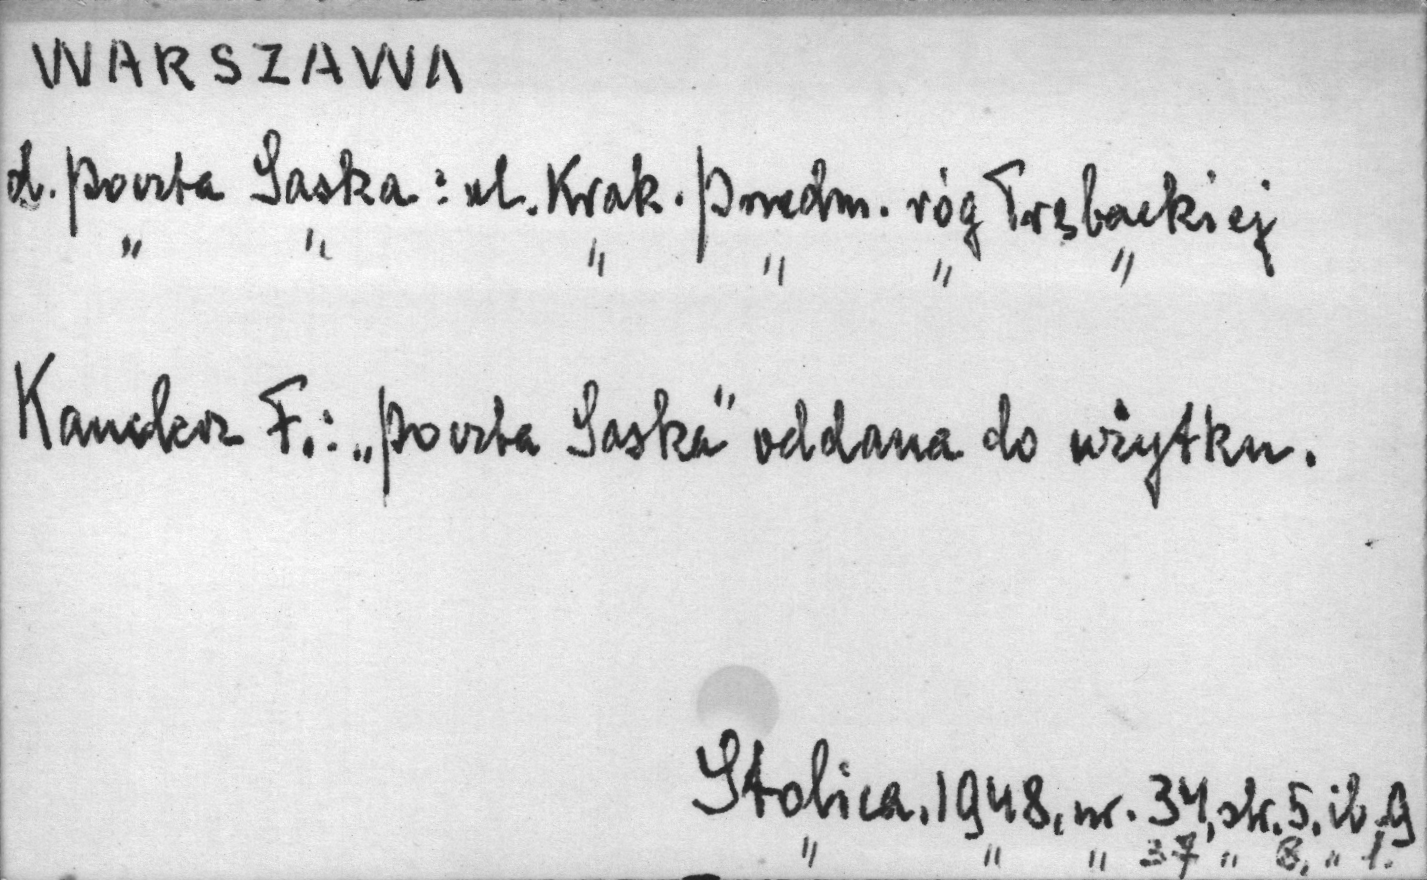 WARSZAWA
d. poczta Saska: ul. Krak. Przedm. róg Trębackiej
" " " " " "
F.: „poczta Saska" oddana do użytku.
Stolica. 1948, nr. 34, str. 5, il. 9
" " " 37 " 8, " 1.